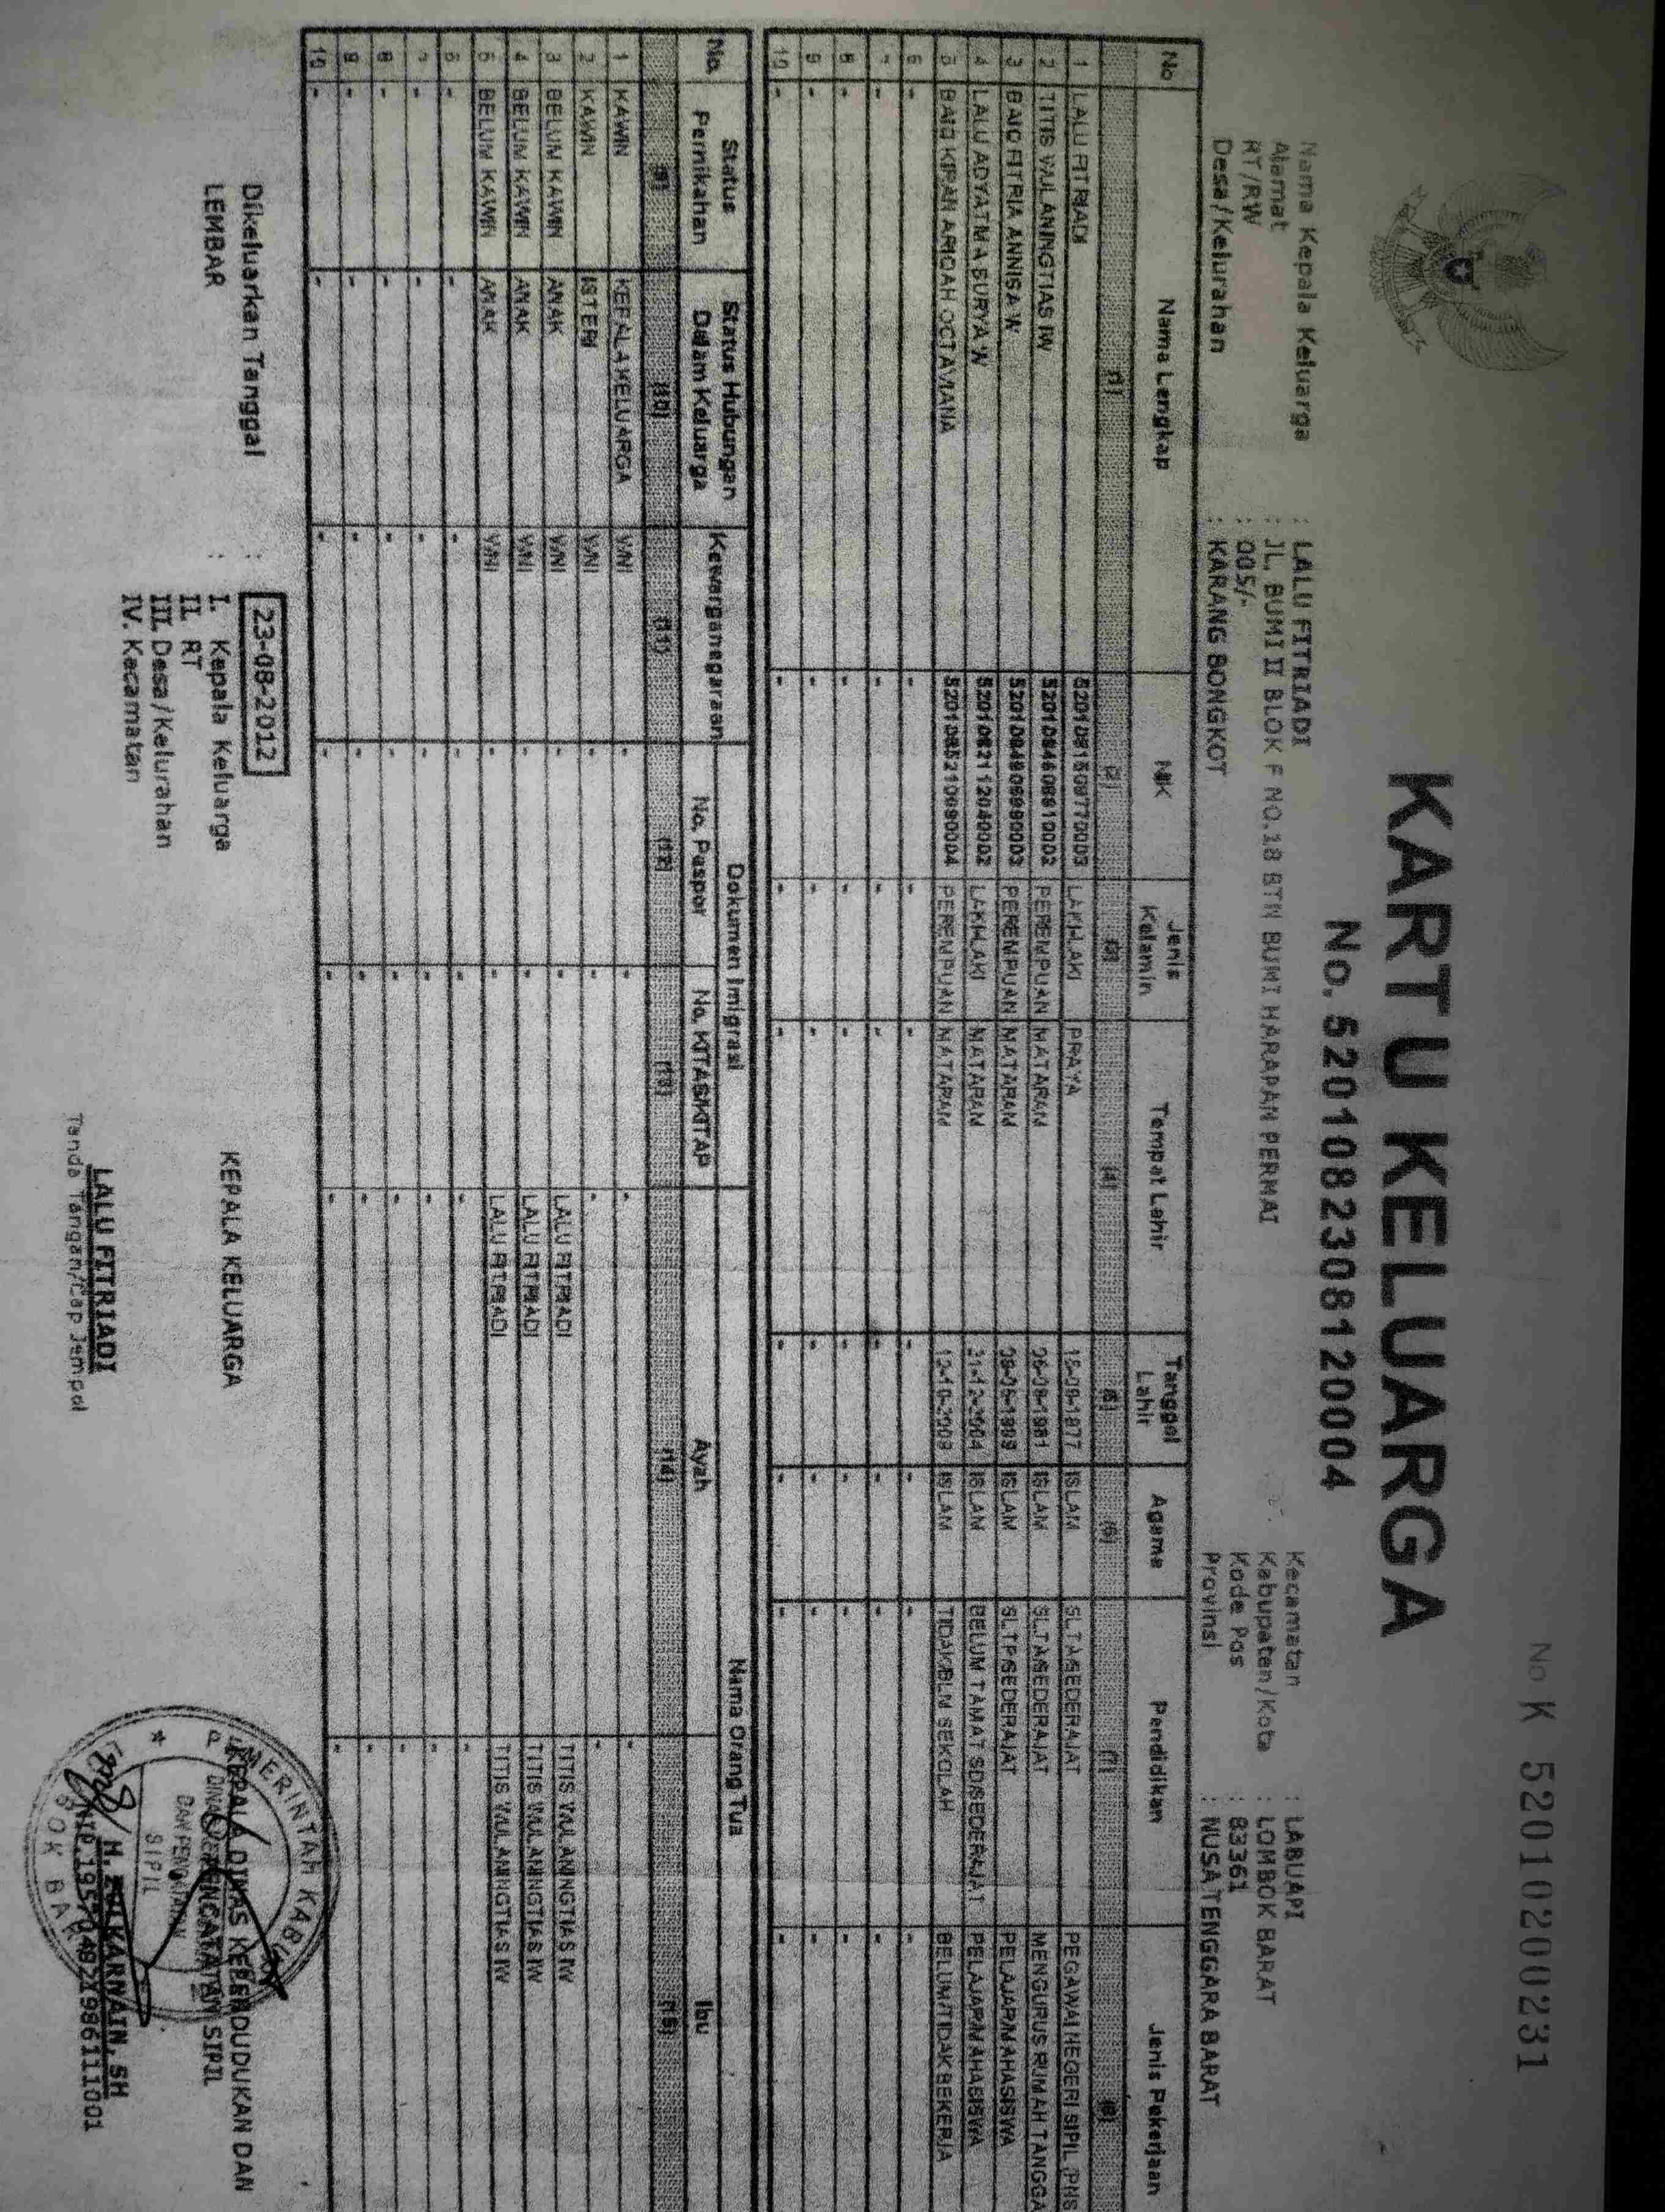 No K 5201020020231
KARTU KELUARGA
No. 5201082308120004
Nama Kepala Keluarga : LALU FITRIADI
Alamat : JL. BUMI II BLOK F NO.18 BTN BUMI HARAPAN PERMAI
RT/RW : 005/-
Desa/Kelurahan : KARANG BONGKOT
Kecamatan : LABUAPI
Kabupaten/Kota : LOMBOK BARAT
Kode Pos : 83361
Provinsi : NUSA TENGGARA BARAT
No Nama Lengkap NIK Jenis Kelamin Tempat Lahir Tanggal Lahir Agama Pendidikan Jenis Pekerjaan
(1) (2) (3) (4) (5) (6) (7) (8)
1 LALU FITRIADI 5201081509770003 LAKI-LAKI PRAYA 15-09-1977 ISLAM SLTA/SEDERAJAT PEGAWAI NEGERI SIPIL (PNS
2 TITIS WULANINGTIAS IW PEREMPUAN MATARAM ISLAM SLTA/SEDERAJAT MENGURUS RUMAH TANGGA
3 BAIQ FITRIA ANNISA W PEREMPUAN MATARAM ISLAM SLTP/SEDERAJAT PELAJAR/MAHASISWA
4 LALU ADYATMA SURYA W 5201082112040002 LAKI-LAKI MATARAM ISLAM BELUM TAMAT SD/SEDERAJAT PELAJAR/MAHASISWA
5 BAIQ KIRAN ARIQAH OCTAVIANA PEREMPUAN MATARAM ISLAM TIDAK/BLM SEKOLAH BELUM/TIDAK BEKERJA
6 - - - - - - - -
7 - - - - - - - -
8 - - - - - - - -
9 - - - - - - - -
10 - - - - - - - -
No. Status Pernikahan Status Hubungan Dalam Keluarga Kewarganegaraan Dokumen Imigrasi Nama Orang Tua
No. Paspor No. KITAS/KITAP Ayah Ibu
(9) (10) (11) (12) (13) (14) (15)
1 KAWIN KEPALA KELUARGA WNI - - - -
2 KAWIN ISTERI WNI - - - -
3 BELUM KAWIN ANAK WNI - - LALU FITRIADI TITIS WULANINGTIAS IW
4 BELUM KAWIN ANAK WNI - - LALU FITRIADI TITIS WULANINGTIAS IW
5 BELUM KAWIN ANAK WNI - - LALU FITRIADI TITIS WULANINGTIAS IW
6 - - - - - - -
7 - - - - - - -
8 - - - - - - -
9 - - - - - - -
10 - - - - - - -
Dikeluarkan Tanggal : 23-08-2012
LEMBAR : I. Kepala Keluarga
II. RT
III. Desa/Kelurahan
IV. Kecamatan
KEPALA KELUARGA
LALU FITRIADI
Tanda Tangan/Cap Jempol
KEPALA DINAS KEPENDUDUKAN DAN
PENCATATAN SIPIL
PEMERINTAH KABUPATEN
SIPIL
H. ZULKARNAIN, SH